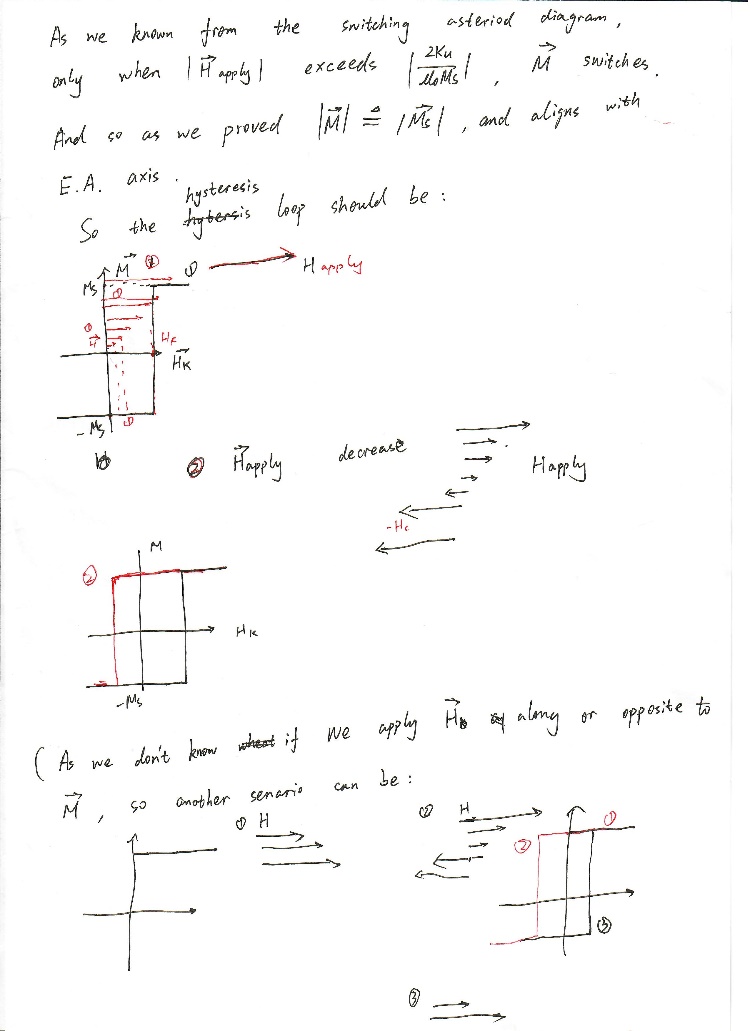 As we known from the switching asteriod diagram,
only when |H⃗ apply| exceeds |2Ku / μ₀Ms|, M⃗ switches.
And so as we proved |M⃗| ≙ |M⃗s|, and aligns with
E.A. axis.
hysteresis
So the hytersis loop should be:
M⃗ ② ①
H apply
Ms
①
①
H⃗
Hc
H⃗K
-Ms ①
② H⃗apply decrease
Happly
-Hc
M
②
HK
-Ms
(As we don't know what if we apply H⃗ along or opposite to
M⃗, so another senario can be:
① H
② H
①
②
③
③